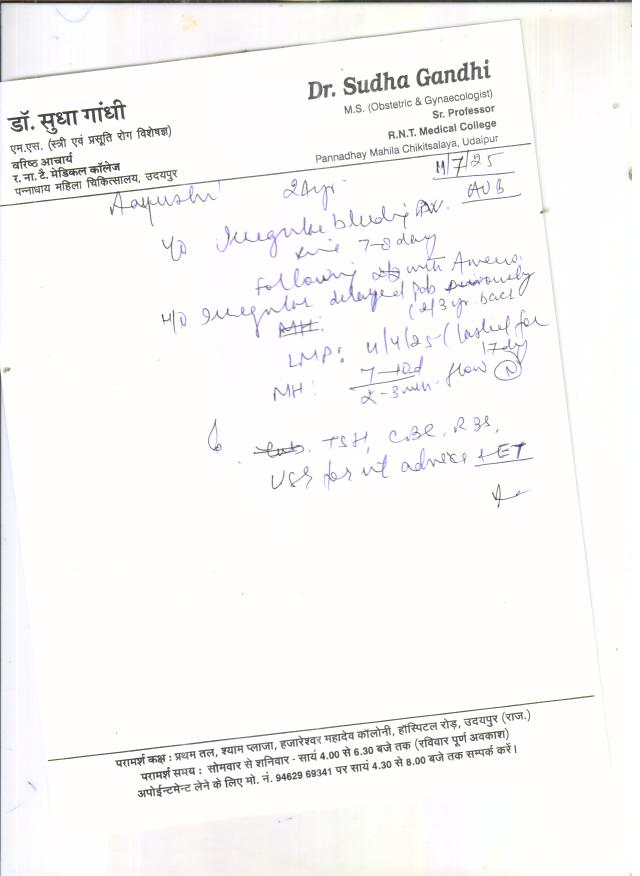 डॉ. सुधा गांधी
एम.एस. (स्त्री एवं प्रसूति रोग विशेषज्ञ)
वरिष्ठ आचार्य
र. ना. टै. मेडिकल कॉलेज
पन्नाधाय महिला चिकित्सालय, उदयपुर
Dr. Sudha Gandhi
M.S. (Obstetric & Gynaecologist)
Sr. Professor
R.N.T. Medical College
Pannadhay Mahila Chikitsalaya, Udaipur
11/7/25
Aayushi 24yr. AUB
Irregular bleeding PV.
since 7-8 day
Following with
H/O Irregular delayed
(2/3 yr. back
LMP: 4/4/25 (lasted for
17 day
MH: 7-10d
2-3 mth. flow (N)
TSH, CBC, RBS,
USG for int + ET
परामर्श कक्ष : प्रथम तल, श्याम प्लाजा, हजारेश्वर महादेव कॉलोनी, हॉस्पिटल रोड़, उदयपुर (राज.)
परामर्श समय : सोमवार से शनिवार - सायं 4.00 से 6.30 बजे तक (रविवार पूर्ण अवकाश)
अपोईन्टमेन्ट लेने के लिए मो. नं. 94629 69341 पर सायं 4.30 से 8.00 बजे तक सम्पर्क करें।